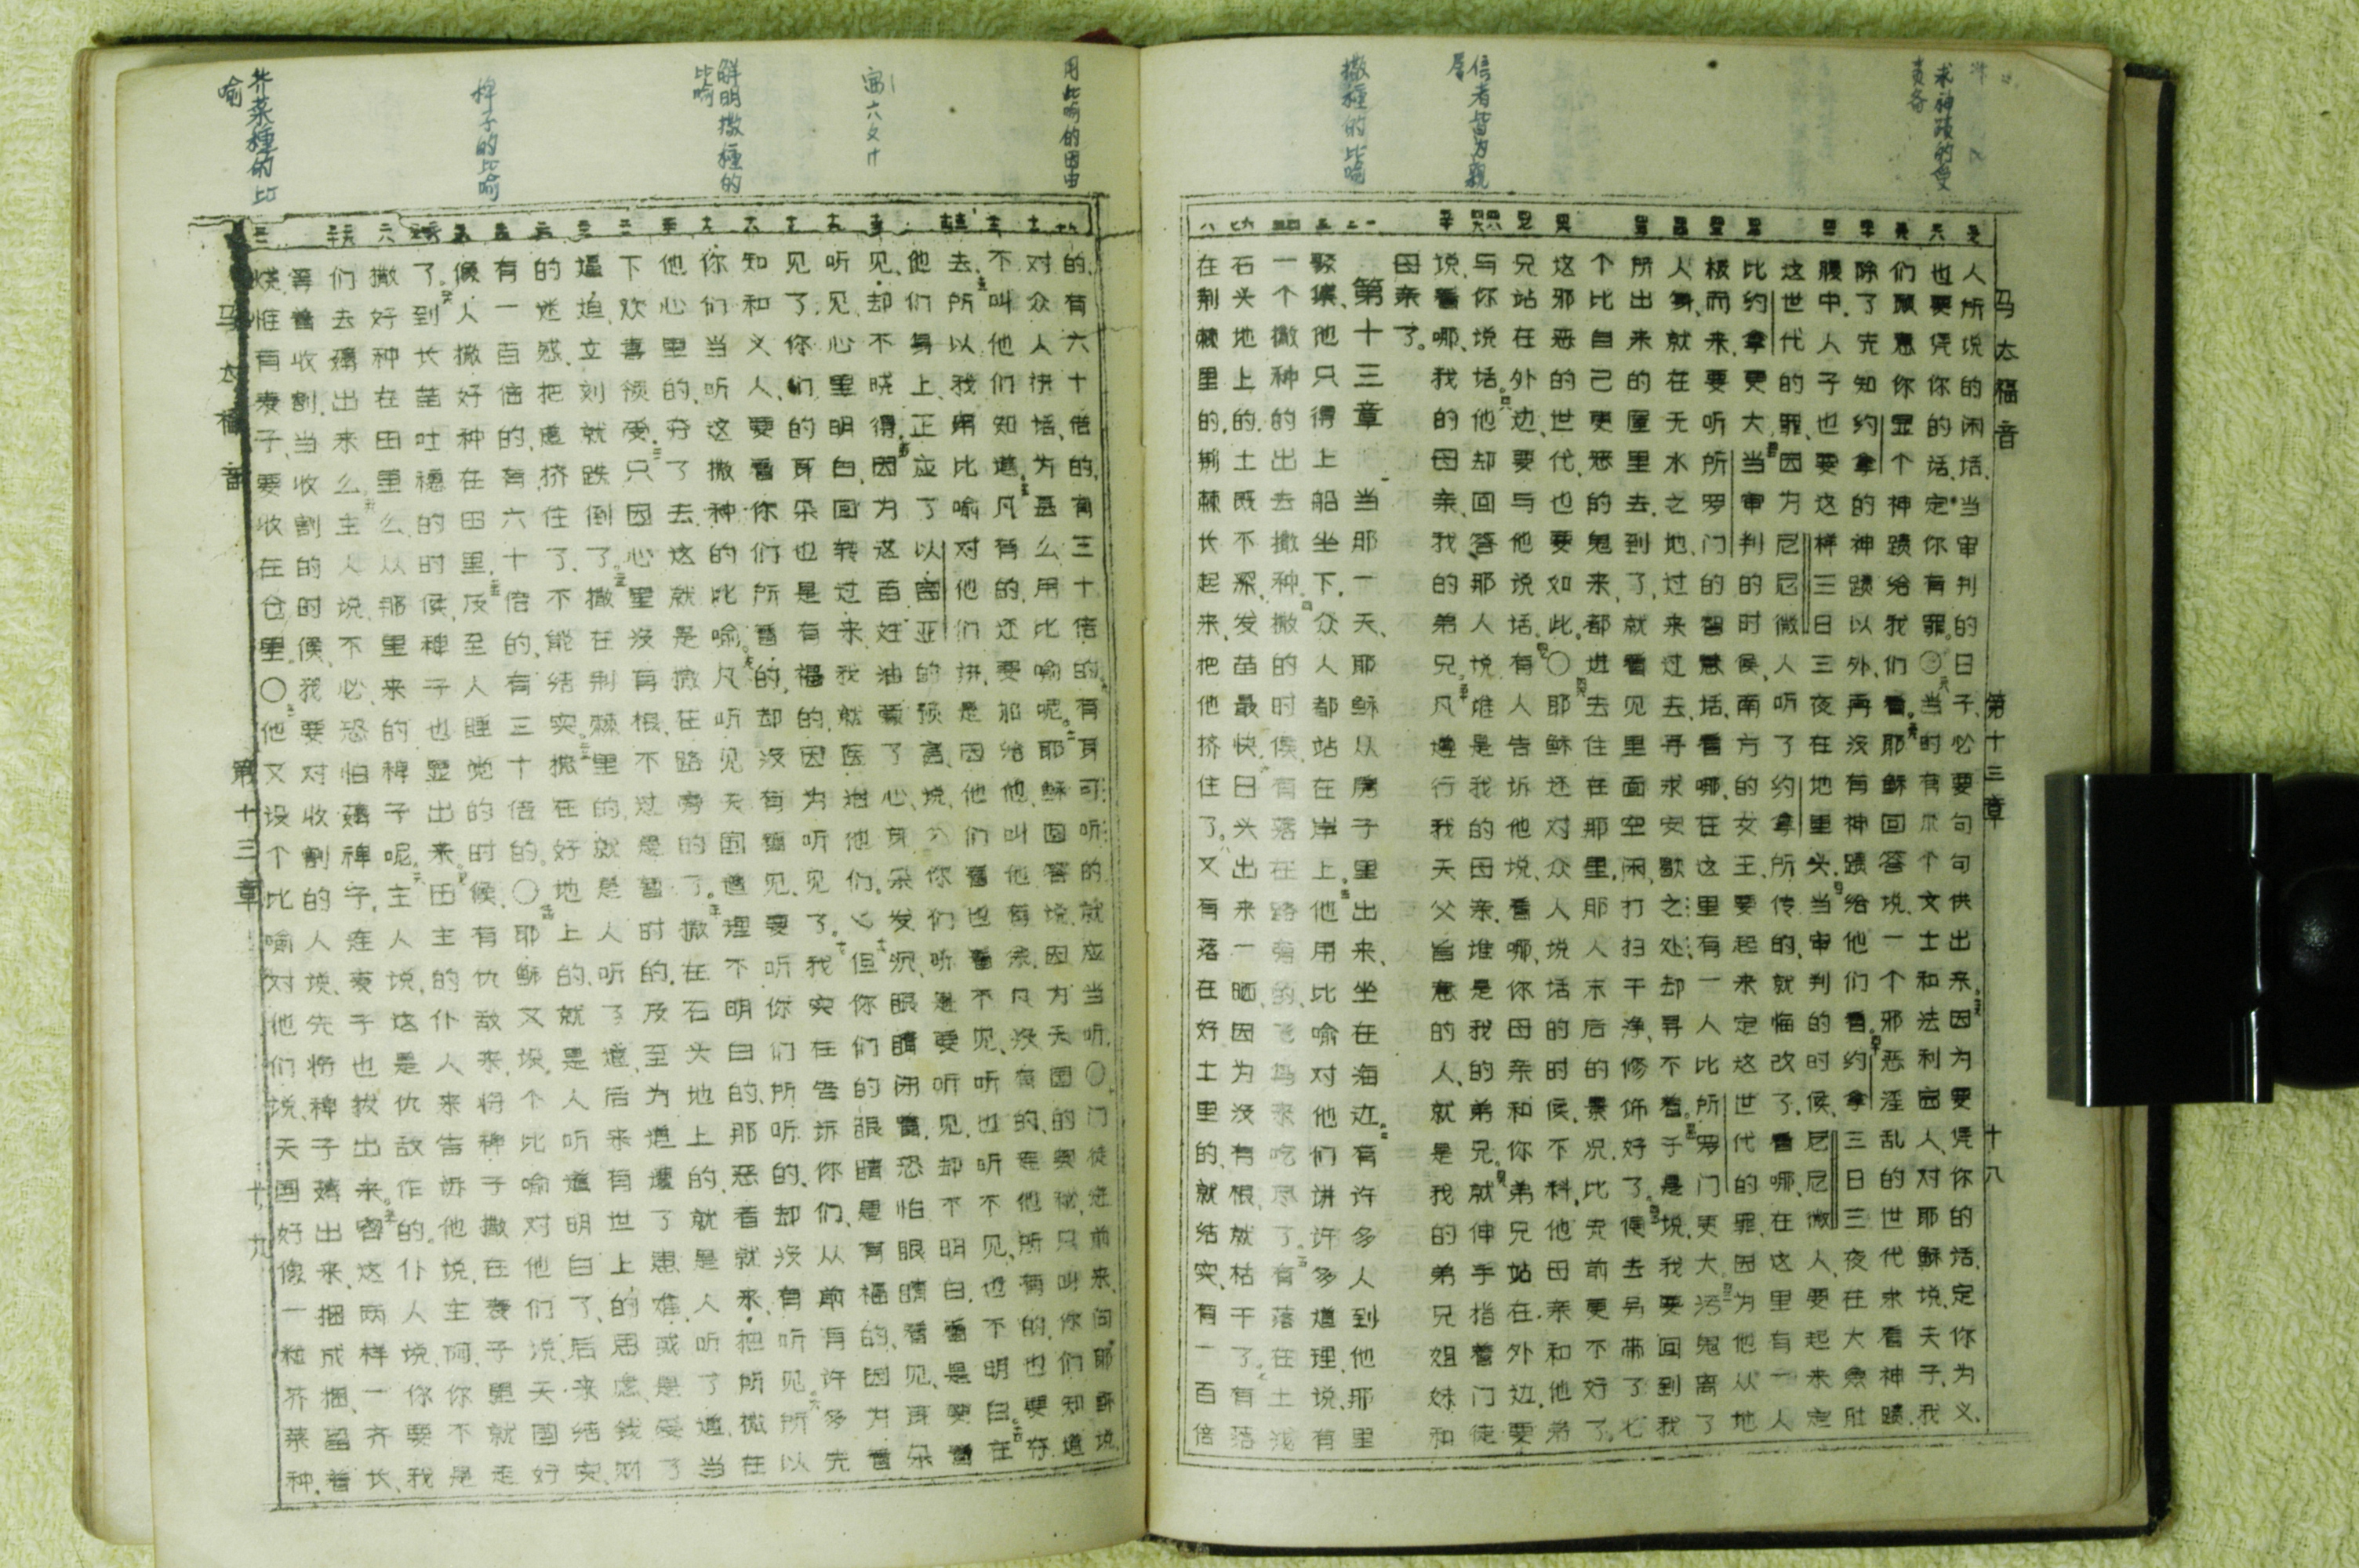 求神蹟的受责备
信者皆为亲属
撒種的比喻
马太福音 第十三章 十八
人所说的闲话、当审判的日子、必要句句供出来。因为要凭你的话、定你为义、
也要凭你的话、定你有罪。〇当时有几个文士和法利赛人、对耶稣说、夫子、我
们愿意你显个神蹟给我们看。耶稣回答说、一个邪恶淫乱的世代求看神蹟、
除了先知约拿的神蹟以外、再没有神蹟给他们看。约拿三日三夜在大鱼肚
腹中、人子也要这样三日三夜在地里头。当审判的时候、尼尼微人要起来定
这世代的罪、因为尼尼微人听了约拿所传的、就悔改了、看哪、在这里有一人
比约拿更大。当审判的时候、南方的女王、要起来定这世代的罪、因为他从地
极而来、要听所罗门的智慧话、看哪、在这里有一人比所罗门更大。污鬼离了
人身、就在无水之地、过来过去、寻求安歇之处、却寻不着。于是说、我要回到我
所出来的屋里去、到了就看见里面空闲、打扫干净、修饰好了。便去另带了七
个比自己更恶的鬼来、都进去住在那里、那人末后的景况、比先前更不好了、
这邪恶的世代、也要如此。〇耶稣还对众人说话的时候、不料他母亲和他弟
兄站在外边、要与他说话。有人告诉他说、看哪、你母亲和你弟兄站在外边、要
与你说话。他却回答那人说、谁是我的母亲、谁是我的弟兄。就伸手指着门徒
说、看哪、我的母亲、我的弟兄。凡遵行我天父旨意的人、就是我的弟兄姐妹和
母亲了。
第十三章 当那一天、耶稣从房子里出来、坐在海边。有许多人到他那里
聚集、他只得上船坐下、众人都站在岸上。他用比喻对他们讲许多道理、说、有
一个撒种的出去撒种。撒的时候、有落在路旁的、飞鸟来吃尽了。有落在土浅
石头地上的、土既不深、发苗最快、日头出来一晒、因为没有根、就枯干了。有落
在荆棘里的、荆棘长起来、把他挤住了。又有落在好土里的、就结实、有一百倍
用比喻的因由
解明撒種的比喻
稗子的比喻
芥菜種的比喻
的、有六十倍的、有三十倍的。有耳可听的就应当听。〇门徒进前来、问耶稣说、
对众人讲话、为甚么用比喻呢。耶稣回答说、因为天国的奥秘、只叫你们知道、
不叫他们知道。凡有的、还要加给他、叫他有余、凡没有的、连他所有的、也要夺
去。所以我用比喻对他们讲、是因他们看也看不见、听也听不见、也不明白。在
他们身上、正应了以赛亚的预言、说、你们听是要听见、却不明白、看是要看
见、却不晓得。因为这百姓油蒙了心、耳朵发沉、眼睛闭着、恐怕眼睛看见、耳朵
听见、心里明白、回转过来、我就医治他们。但你们的眼睛是有福的、因为看
见了、你们的耳朵也是有福的、因为听见了。我实在告诉你们、从前有许多先
知和义人、要看你们所看的、却没有看见、要听你们所听的、却没有听见。所以
你们当听这撒种的比喻。凡听见天国道理不明白的、那恶者就来、把所撒在
他心里的、夺了去、这就是撒在路旁的了。撒在石头地上的、就是人听了道、当
下欢喜领受。只因心里没有根、不过是暂时的、及至为道遭了患难、或是受了
逼迫、立刻就跌倒了。撒在荆棘里的、就是人听了道、后来有世上的思虑、钱财
的迷惑、把道挤住了、不能结实。撒在好地上的、就是人听道明白了、后来结实、
有一百倍的、有六十倍的、有三十倍的。〇耶稣又设个比喻对他们说、天国好
像人撒好种在田里、及至人睡觉的时候、有仇敌来、将稗子撒在麦子里就走
了。到长苗吐穗的时候、稗子也显出来。田主的仆人来告诉他说、主阿、你不是
撒好种在田里么、从那里来的稗子呢。主人说、这是仇敌作的。仆人说、你要我
们去薅出来么。主人说、不必、恐怕薅稗子、连麦子也拔出来。容这两样一齐长、
等着收割、当收割的时候、我要对收割的人说、先将稗子薅出来、捆成捆、留着
烧、惟有麦子要收在仓里。〇他又设个比喻对他们说、天国好像一粒芥菜种、
马太福音 第十三章 十九